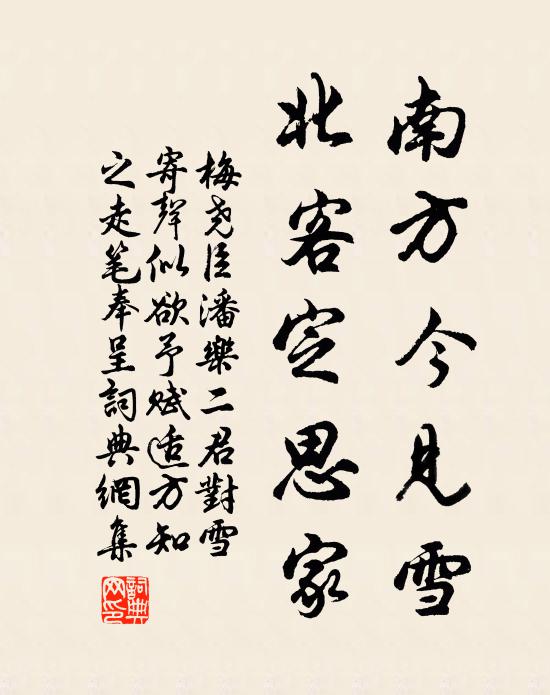 南方今見雪
北客定思家
梅尧臣潘樂二君對雪
寄聲似欲予赋适方知
之走笔奉呈詞典網集
詞典网印